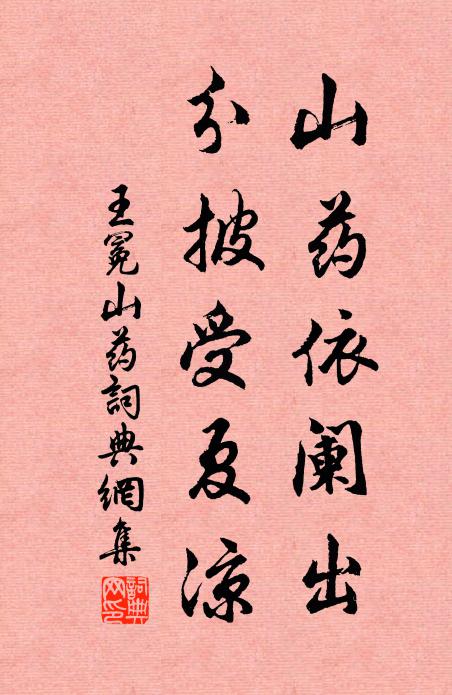 山药依阑出
分披受夏凉
王冕山药詞典網集
詞典
网印